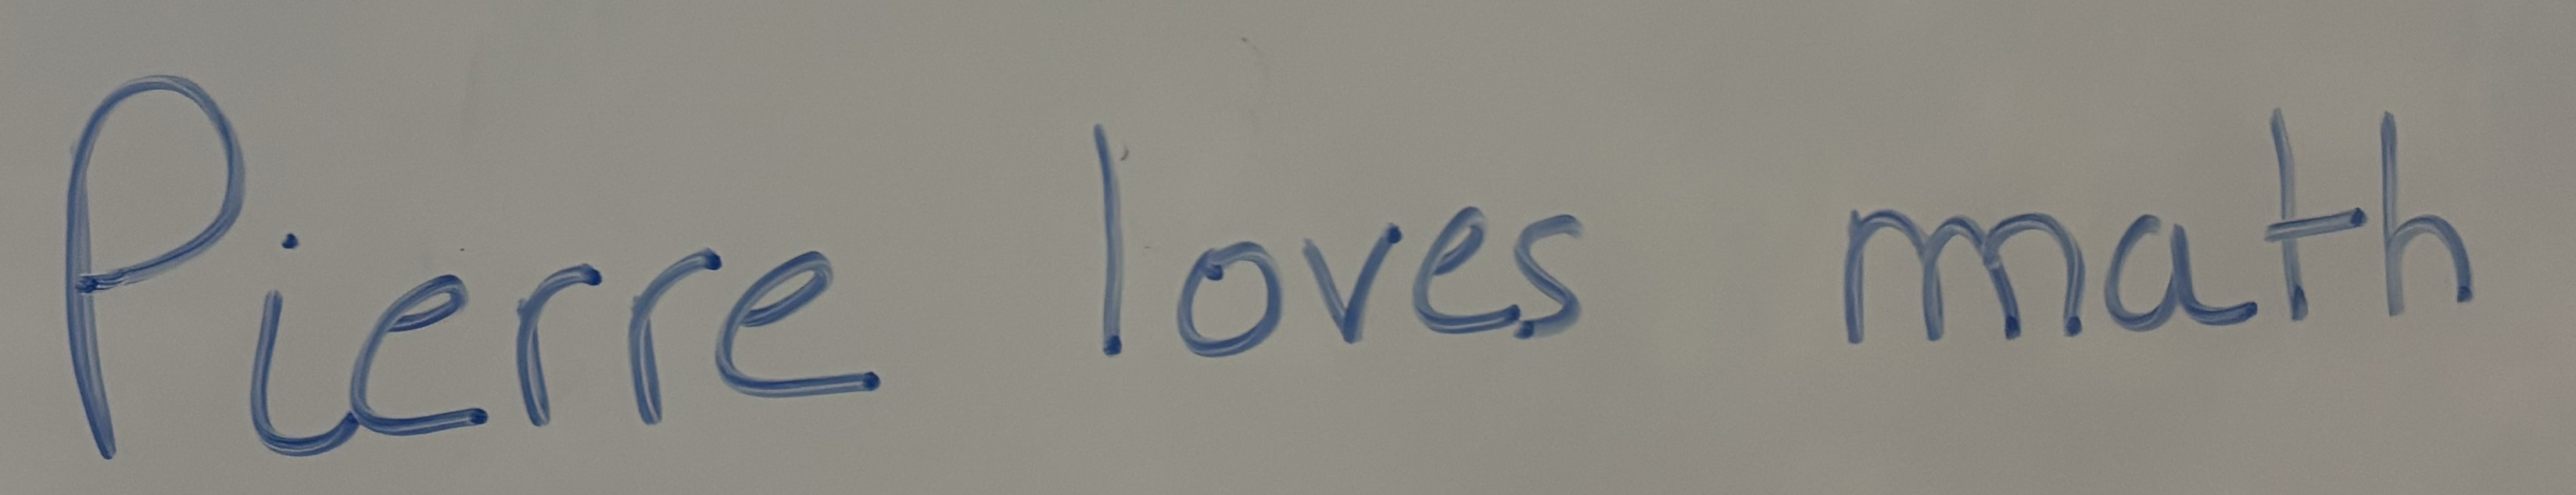 Pierre loves math